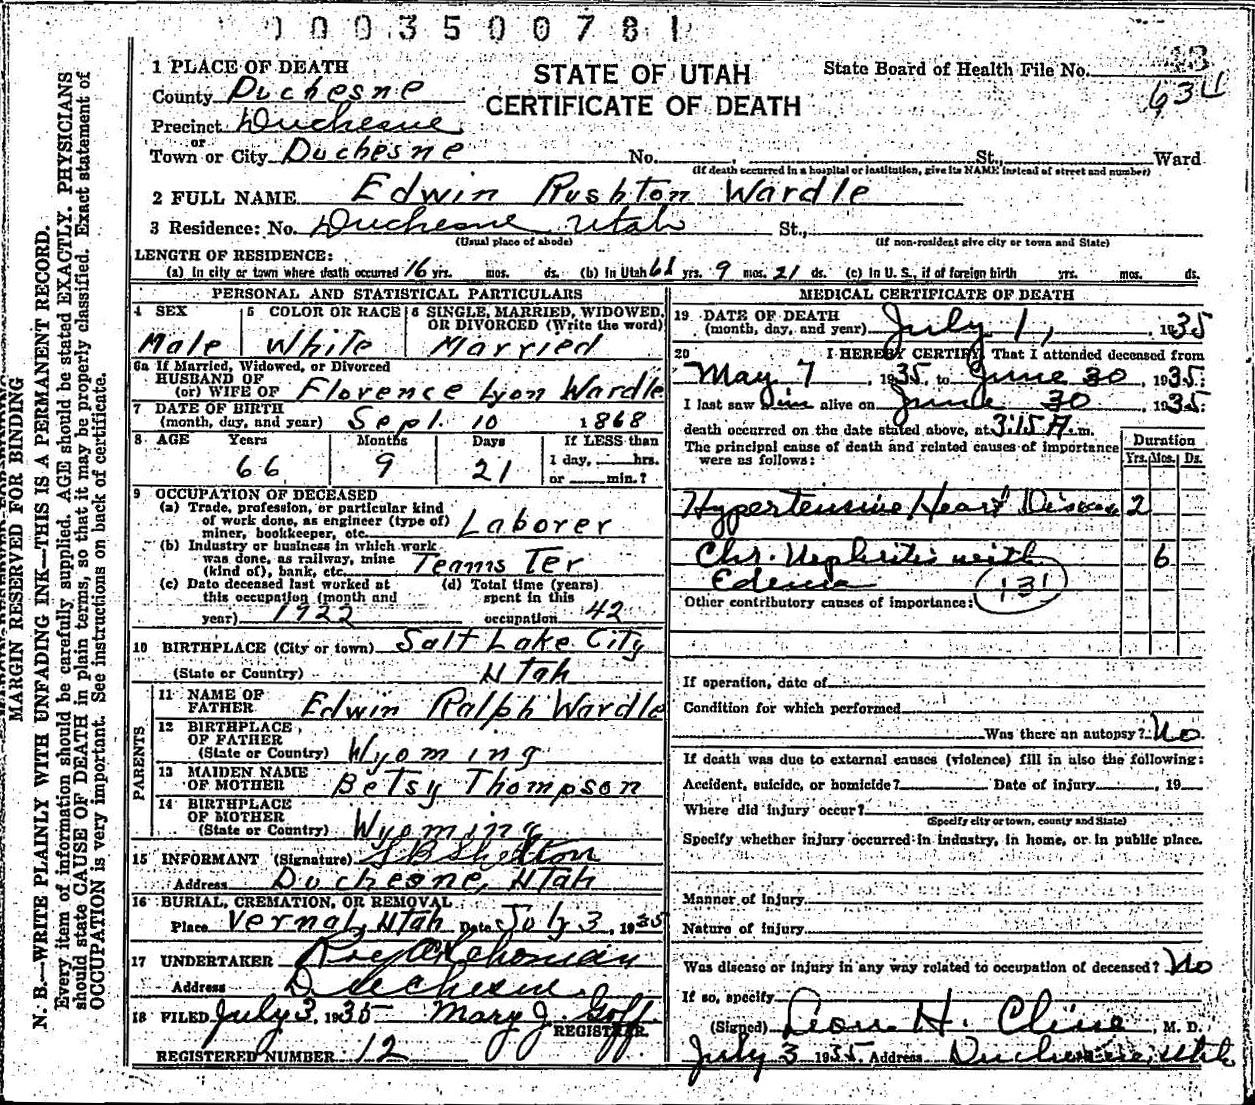 0003500781
1 PLACE OF DEATH
STATE OF UTAH
CERTIFICATE OF DEATH
State Board of Health File No. 43
634
County Duchesne
Precinct Duchesne
or
Town or City Duchesne No. , St., Ward
(If death occurred in a hospital or institution, give its NAME instead of street and number)
2 FULL NAME Edwin Rushton Wardle
3 Residence: No. Duchesne Utah St.,
(Usual place of abode) (If non-resident give city or town and State)
LENGTH OF RESIDENCE:
(a) In city or town where death occurred 16 yrs. mos. ds. (b) In Utah yrs. 9 mos. 21 ds. (c) In U. S., if of foreign birth yrs. mos. ds.
PERSONAL AND STATISTICAL PARTICULARS
4 SEX 5 COLOR OR RACE 6 SINGLE, MARRIED, WIDOWED, OR DIVORCED (Write the word)
Male White Married
6a If Married, Widowed, or Divorced
HUSBAND OF
(or) WIFE OF Florence Lyon Wardle
7 DATE OF BIRTH
(month, day, and year) Sept. 10 1868
8 AGE Years Months Days If LESS than
66 9 21 1 day, hrs.
or min.?
9 OCCUPATION OF DECEASED
(a) Trade, profession, or particular kind
of work done, as engineer (type of)
miner, bookkeeper, etc. Laborer
(b) Industry or business in which work
was done, as railway, mine
(kind of), bank, etc. Teams Ter
(c) Date deceased last worked at (d) Total time (years)
this occupation (month and spent in this
year) 1922 occupation 42
10 BIRTHPLACE (City or town) Salt Lake City
(State or Country) Utah
PARENTS
11 NAME OF
FATHER Edwin Ralph Wardle
12 BIRTHPLACE
OF FATHER
(State or Country) Wyoming
13 MAIDEN NAME
OF MOTHER Betsy Thompson
14 BIRTHPLACE
OF MOTHER
(State or Country) Wyoming
15 INFORMANT (Signature) Shelton
Address Duchesne, Utah
16 BURIAL, CREMATION, OR REMOVAL
Place Vernal, Utah Date July 3, 1935
17 UNDERTAKER Roy
Address Duchesne.
18 FILED July 3, 1935 Mary J. Goff.
REGISTRAR
REGISTERED NUMBER 12
MEDICAL CERTIFICATE OF DEATH
19 DATE OF DEATH
(month, day, and year) July 1, , 1935
20 I HEREBY CERTIFY, That I attended deceased from
May, 7, 1935, to June 30, 1935:
I last saw him alive on June 30, 1935:
death occurred on the date stated above, at 3:15 A. m.
The principal cause of death and related causes of importance
were as follows:
Duration
Yrs. Mos. Ds.
Hypertensive Heart Disease 2
Chr. Nephritis with 6
Edema
131
Other contributory causes of importance:
If operation, date of
Condition for which performed
Was there an autopsy? No
If death was due to external causes (violence) fill in also the following:
Accident, suicide, or homicide? Date of injury , 19
Where did injury occur?
(Specify city or town, county and State)
Specify whether injury occurred in industry, in home, or in public place.
Manner of injury
Nature of injury
Was disease or injury in any way related to occupation of deceased? No
If so, specify
(Signed) H. Cline, M. D.
July 3 1935 Address Duchesne, Utah
MARGIN RESERVED FOR BINDING
N. B.—WRITE PLAINLY WITH UNFADING INK—THIS IS A PERMANENT RECORD.
Every item of information should be carefully supplied. AGE should be stated EXACTLY. PHYSICIANS
should state CAUSE OF DEATH in plain terms, so that it may be properly classified. Exact statement of
OCCUPATION is very important. See instructions on back of certificate.